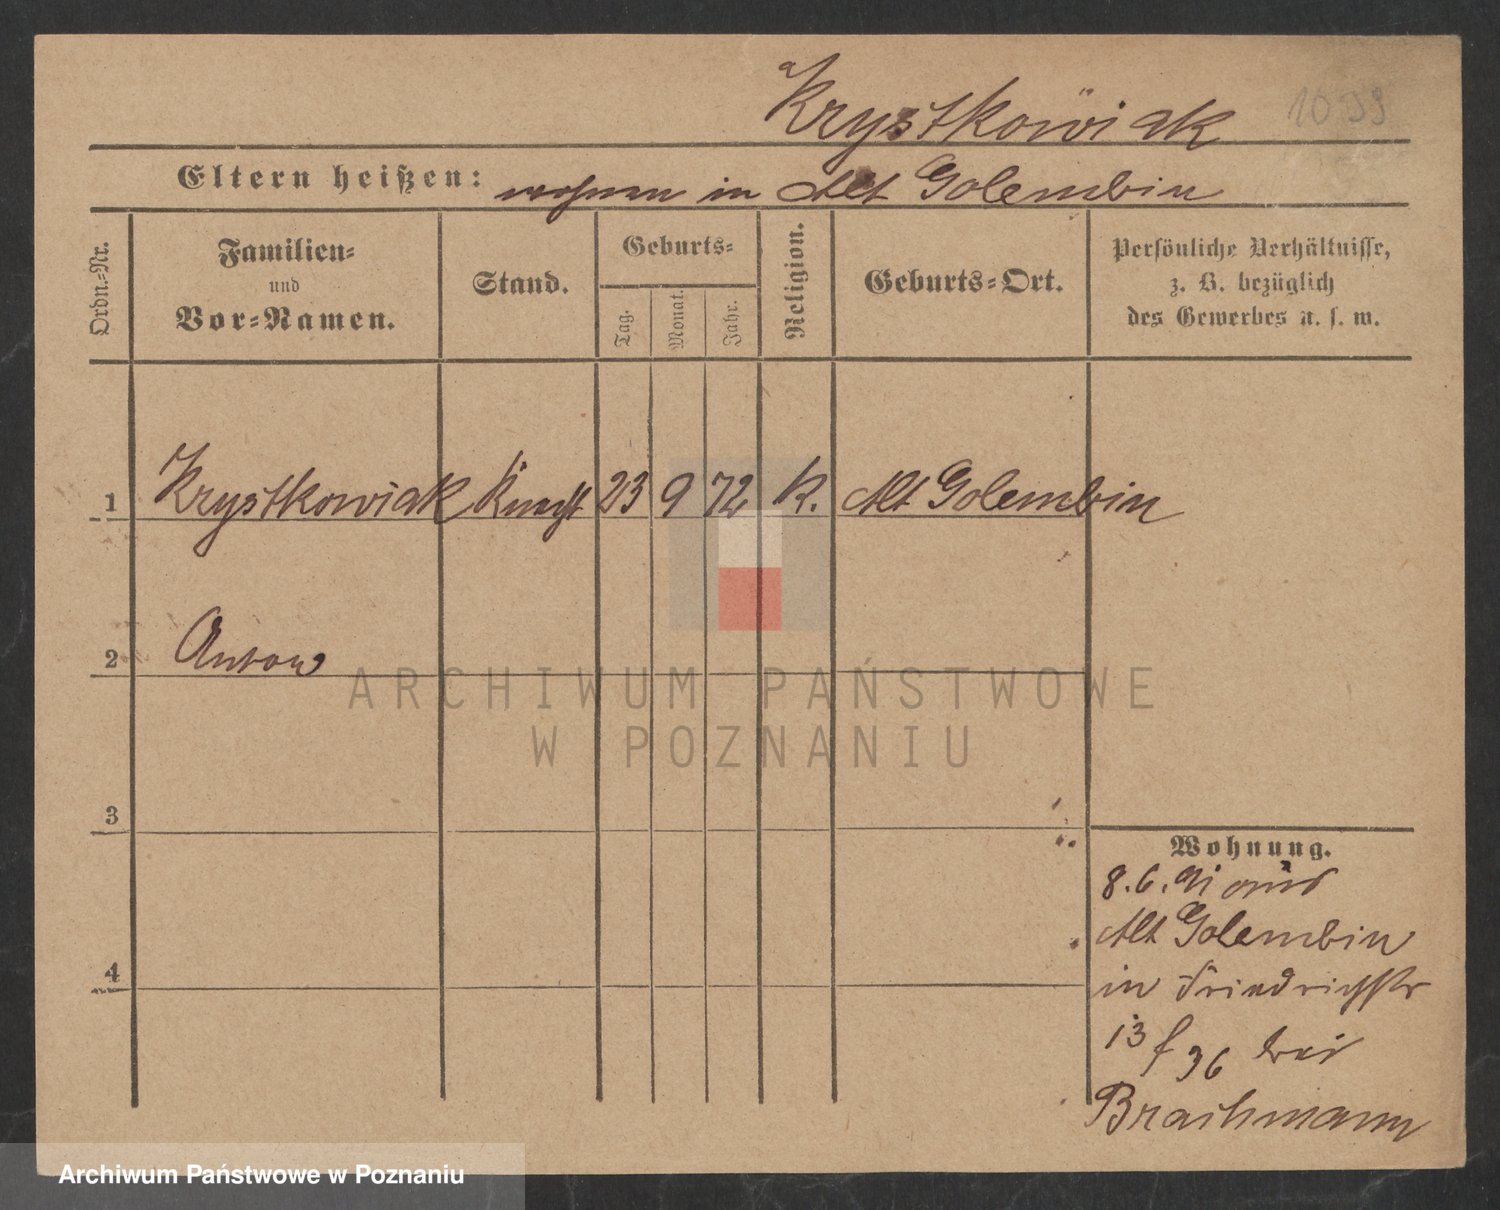 Krystkowiak 1099
Eltern heißen: wohnen in Alt Golembin
Ordn.-Nr.
Familien-
und
Vor-Namen.
Stand.
Geburts-
Tag.
Monat.
Jahr.
Religion.
Geburts-Ort.
Persönliche Verhältnisse,
z. B. bezüglich
des Gewerbes u. s. w.
1 Krystkowiak Knecht 23 9 72 K. Alt Golembin
2 Anton
ARCHIWUM PAŃSTWOWE
W POZNANIU
3
4
Wohnung.
8.6.91 aus
Alt Golembin
in Friedrichstr
13/96 bei
Brachmann
Archiwum Państwowe w Poznaniu